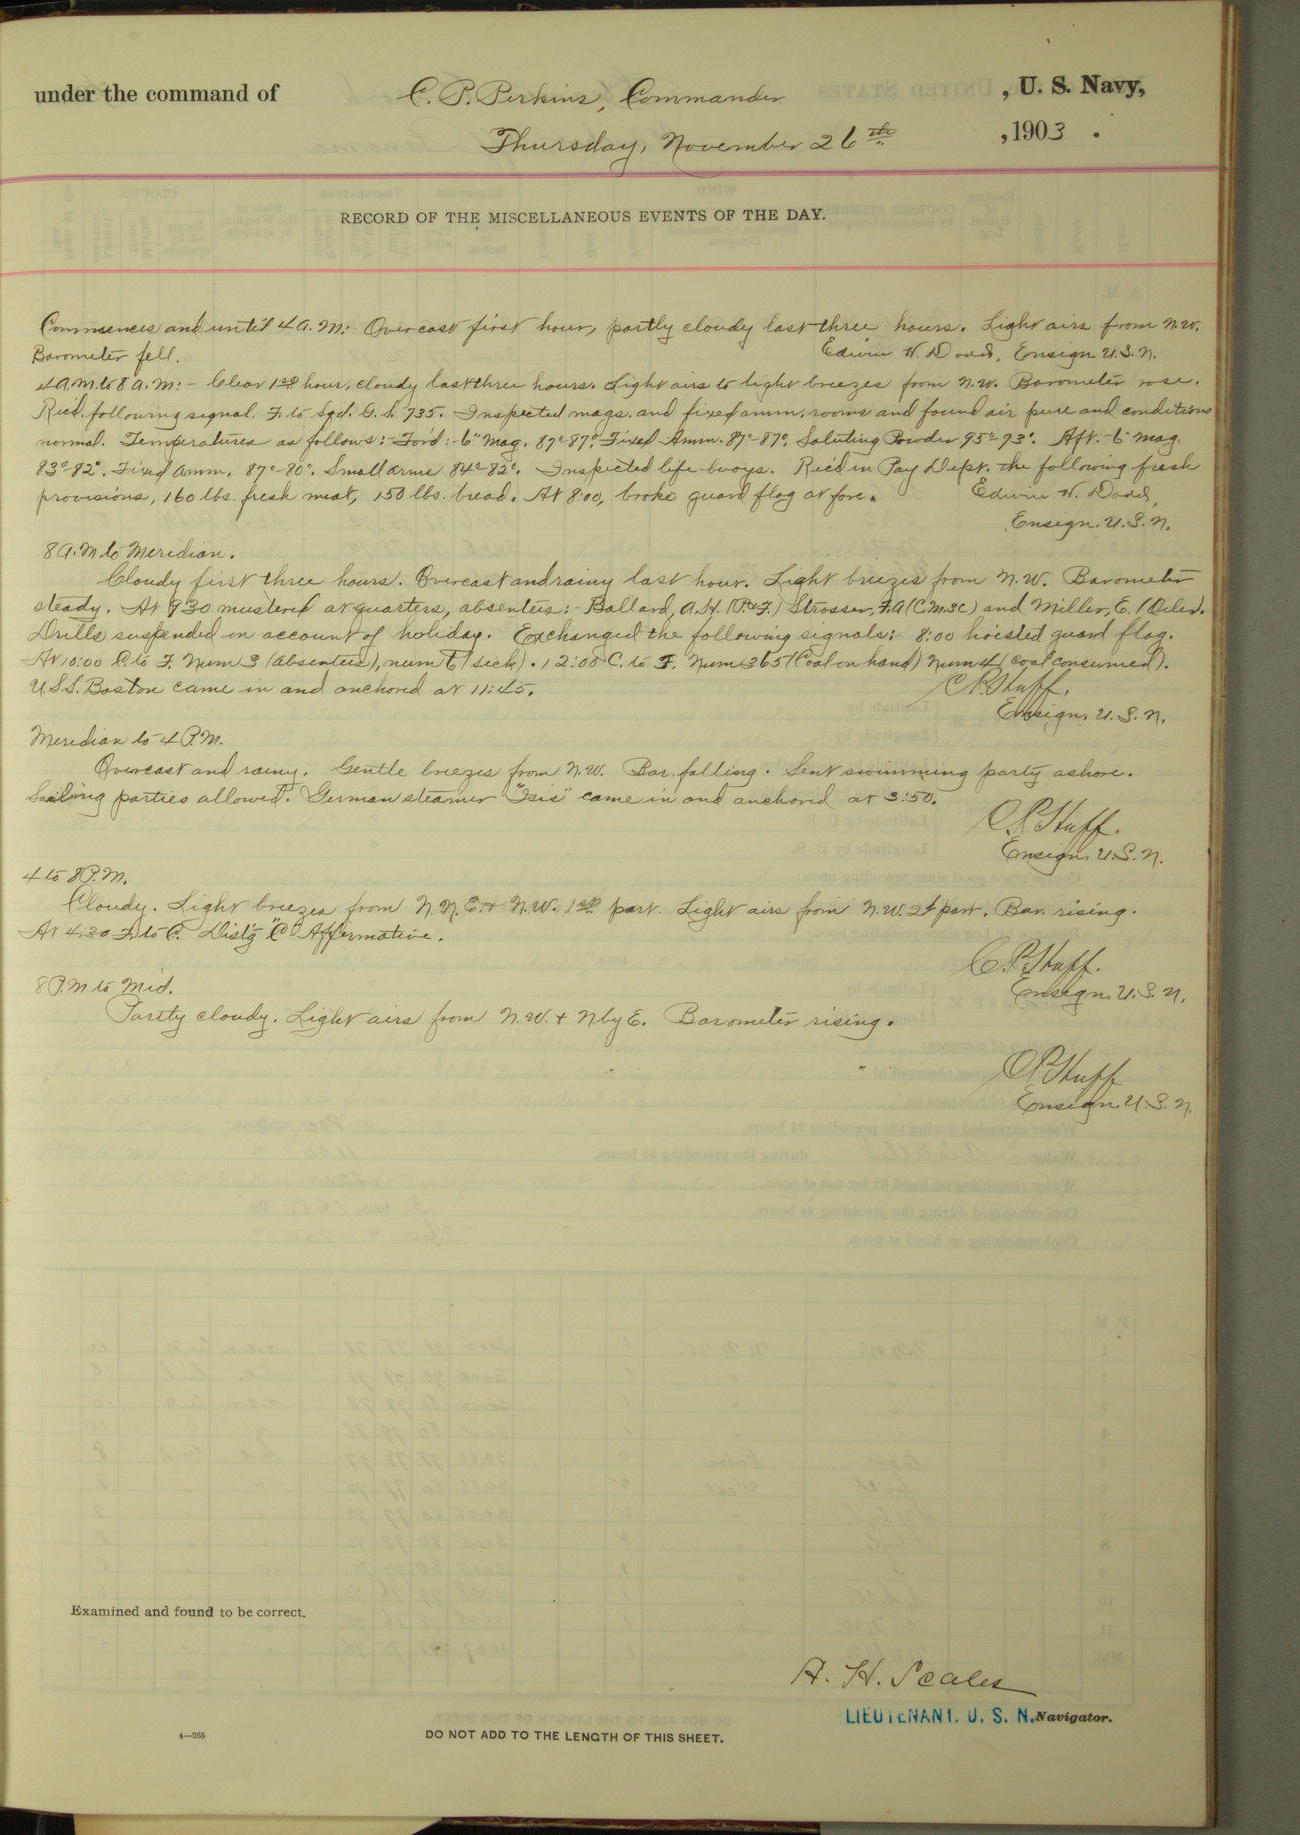 under the command of C. P. Perkins, Commander, U. S. Navy,
Thursday, November 26th, 1903.
RECORD OF THE MISCELLANEOUS EVENTS OF THE DAY.
Commences and until 4 a.m:- Overcast first hour, partly cloudy last three hours. Light airs from N.W.
Barometer fell. Edwin H. Dodd, Ensign U.S.N.
4 a.m. to 8 a.m:- Clear 1st hour, cloudy last three hours. Light airs to light breezes from N.W. Barometer rose.
Rec'd. following signal. F. to Sqd. G.S. 735. Inspected mags. and fixed amm. rooms and found air pure and conditions
normal. Temperatures as follows:- For'd:- 6" Mag. 87°-87°. Fixed Amm. 87°-87°. Saluting Powder 95°-93°. Aft:- 6" Mag.
83°-82°. Fixed Amm. 87°-80°. Small arms 84°-82°. Inspected life-buoys. Rec'd in Pay Dept. the following fresh
provisions, 160 lbs. fresh meat, 150 lbs. bread. At 8:00, broke guard flag at fore. Edwin H. Dodd,
Ensign. U.S.N.
8 A.M to Meridian.
Cloudy first three hours. Overcast and rainy last hour. Light breezes from N.W. Barometer
steady. At 9 30 mustered at quarters, absentees:- Ballard, A.H. (P.&F.) Strosser, F.A (C.M.3C) and Miller, E. (Oiler).
Drills suspended on account of holiday. Exchanged the following signals: 8:00 hoisted guard flag.
At 10:00 C. to F. Num 3 (absentees), num 6 (sick). 12:00 C. to F. Num 365 (Coal on hand) Num 4 (coal consumed).
U.S.S. Boston came in and anchored at 11:45. C.P. Huff.
Ensign. U.S.N.
Meridian to 4 P.M.
Overcast and rainy. Gentle breezes from N.W. Bar. falling. Sent swimming party ashore.
Sailing parties allowed. German steamer "Isis" came in and anchored at 3:50.
C.P. Huff.
Ensign, U.S.N.
4 to 8 P.M.
Cloudy. Light breezes from N.N.E. & N.W. 1st part. Light airs from N.W. 2d part. Bar. rising.
At 4:30 F. to C. Dist'g "C" Affirmative.
C.P. Huff.
Ensign. U.S.N.
8 P.M to Mid.
Partly cloudy. Light airs from N.W. & N by E. Barometer rising.
C.P. Huff
Ensign. U.S.N.
Examined and found to be correct.
A. H. Scales
LIEUTENANT, U. S. N. Navigator.
4—265
DO NOT ADD TO THE LENGTH OF THIS SHEET.